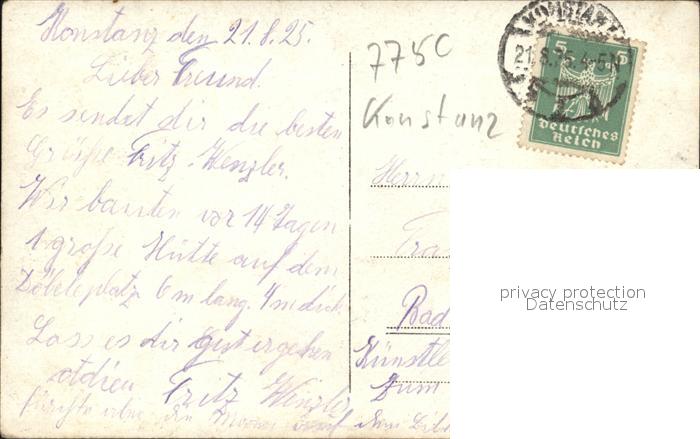 Konstanz den 21.8.25.
Lieber Freund.
Es sendet dir die besten
Grüße Fritz Wenzler.
Wir bauten vor 14 Tagen
1 große Hütte auf dem
Döbeleplatz 6 m lang. 4 m dick
Lass es dir gut ergehen
adieu Fritz Wenzler
775C
Konstanz
KONSTANZ
21.8.25.4-5N
5 5
Deutsches
Reich
Herrn
Bad
Künstle
Zum
privacy protection
Datenschutz